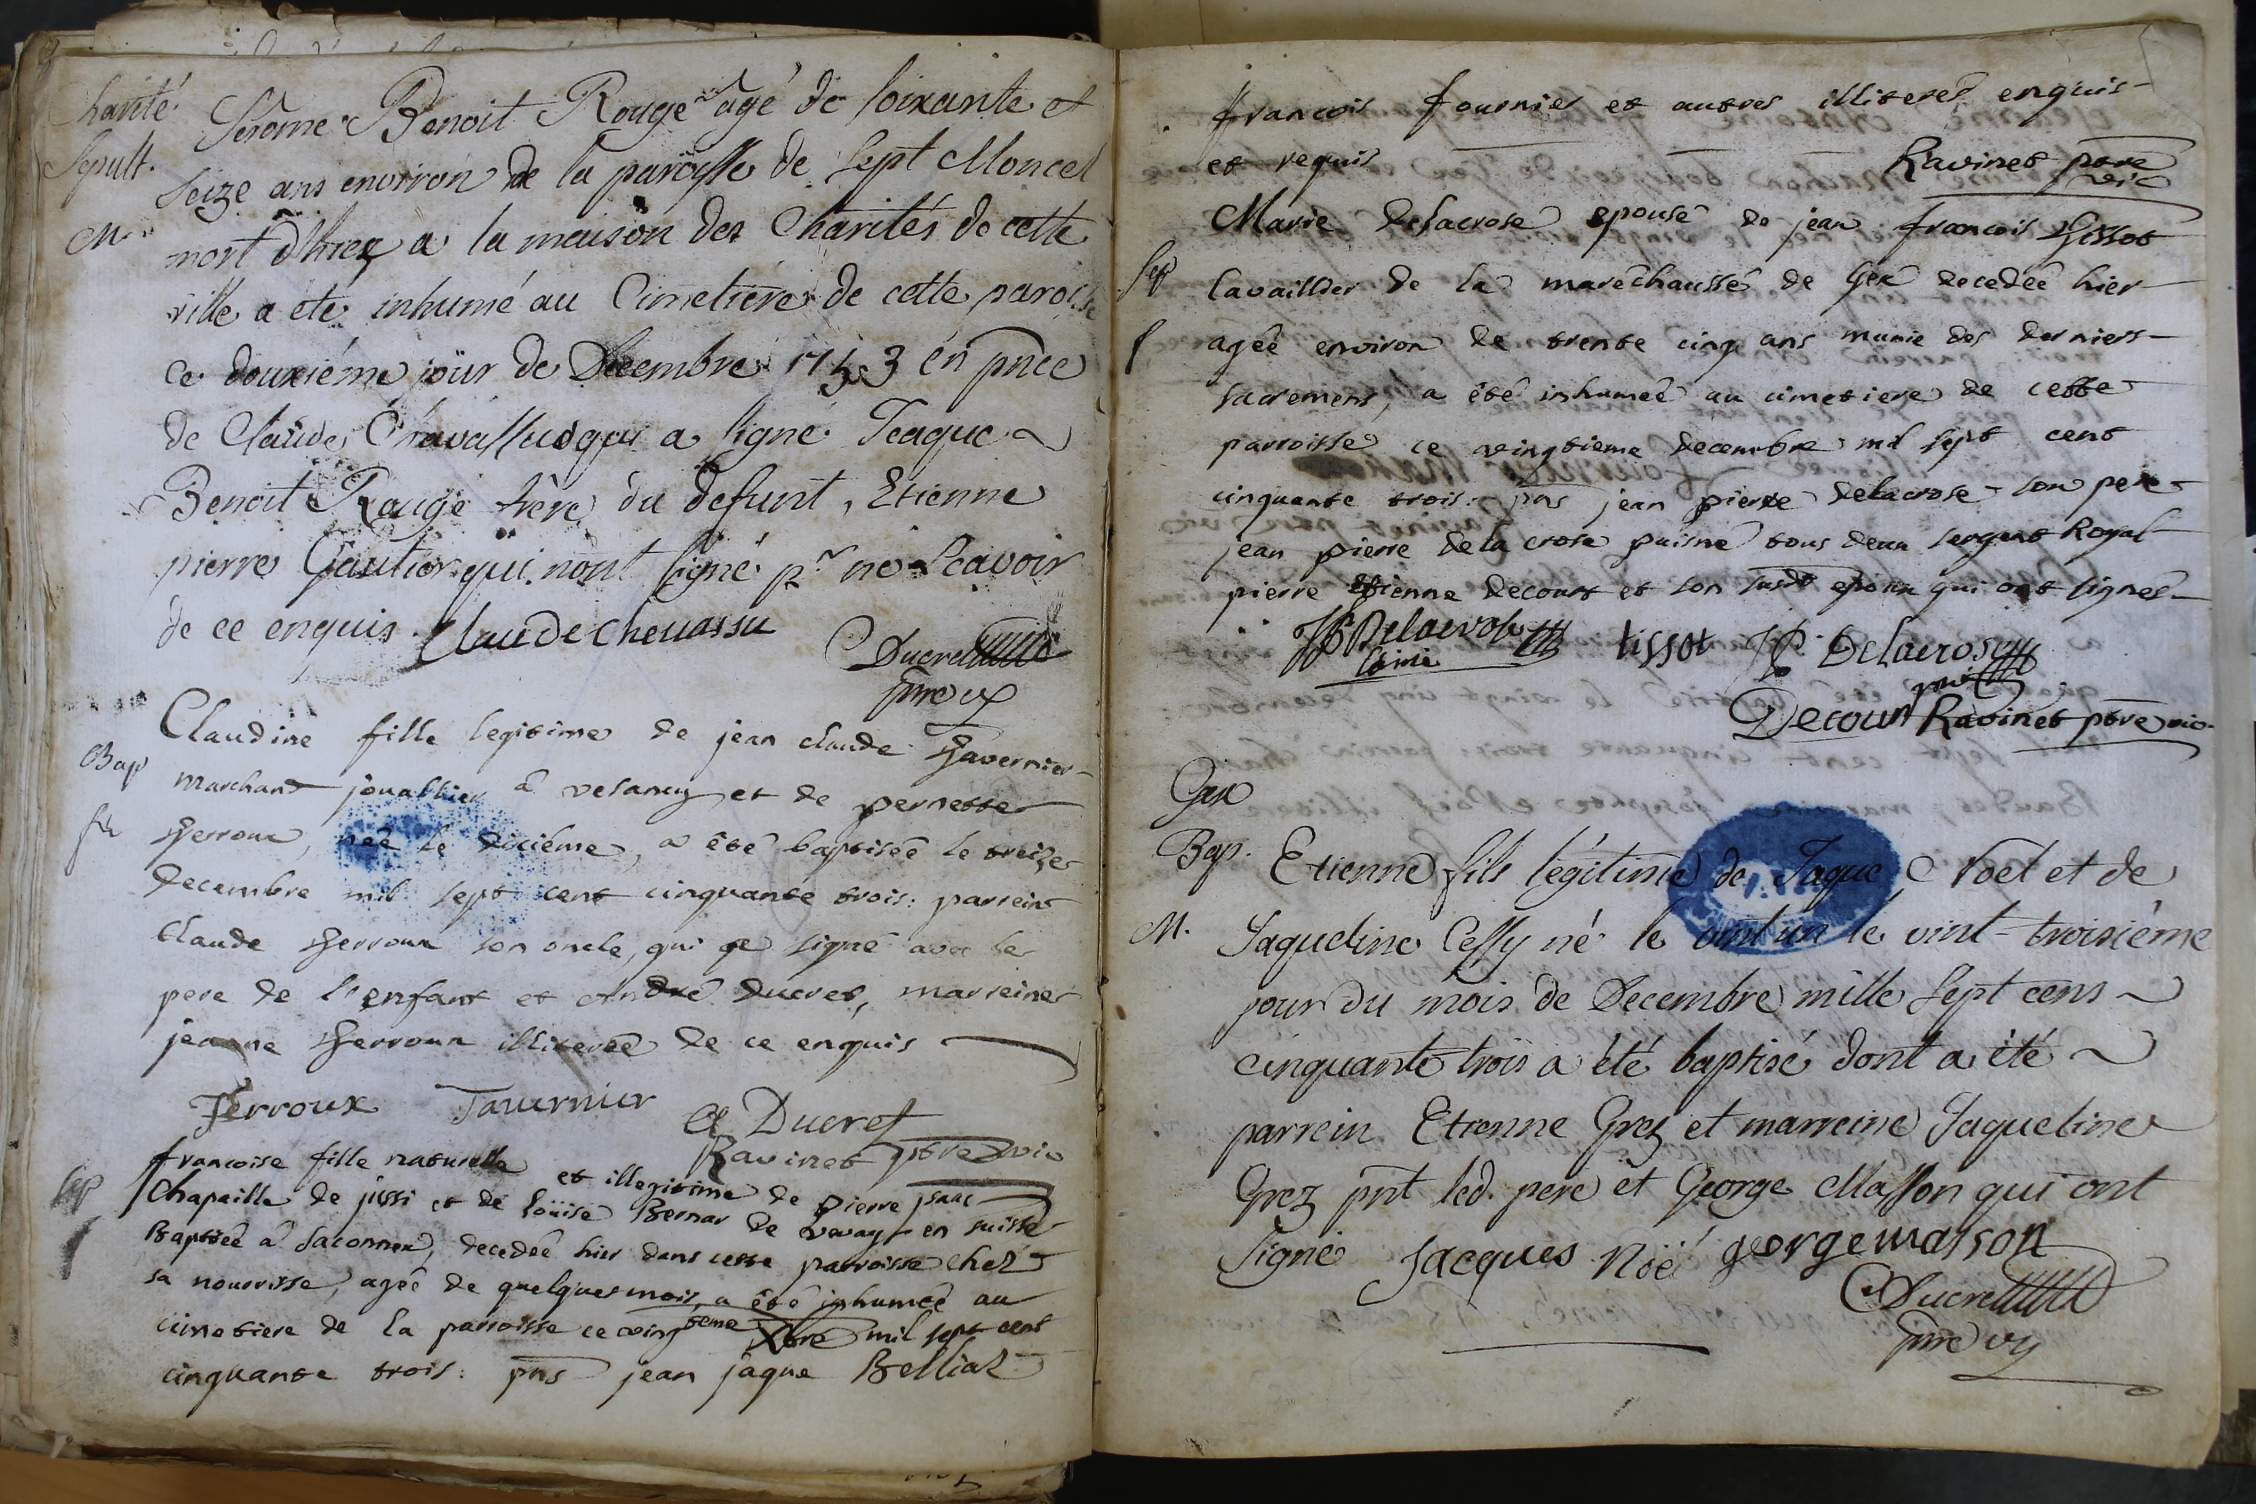 Charité
Sepult.
M.
Jerôme Benoit Rouge agé de soixante et
seize ans environ de la paroisse de Sept Moncel
mort d'hier a la maison des Charités de cette
ville a eté inhumé au Cimetière de cette paroisse
ce douxiéme jour de Decembre 1753 en pnce
de Claude Chavassu qui a signé Jeaque
Benoit Rouge frère du defunt, Etienne
pierre Gautier qui nont signé pr ne Scavoir
de ce enquis. Claude chevassu
Ducret
Bap
fe
Claudine fille legitime de jean claude Tavernier
marchand jouallier à vesancy et de pernette
Perroux, née le dixiéme, a été baptisée le treize
decembre mil sept cent cinquante trois: parrein
Claude Perroux son oncle, qui a signé avec le
pere de l'enfant et andré ducret, marreine
jeanne Perroux illiterée de ce enquis
Perroux Tavernier A Ducret
Ravinet ptre vic
sep
f
francoise fille naturelle et illegitime de pierre jsaac
Chapaille de jussi et de Loüise Bernar de vevay en suisse
Baptisée à saconnex, decedée hier dans cette parroisse chez
sa nourrisse, agée de quelques mois, a été inhumée au
cimetiere de la parroisse ce vingtieme Xbre mil sept cent
cinquante trois: pns jean jaque Belliaz
francois fournier et autres illiteres enquis
et requis Ravinet ptre
vic
sep
f
Marie delacrose epouse de jean francois Tissot
Cavaillier de la marêchaussé de Gex decedée hier
agée environ de trente cinq ans munie des derniers
sacremens, a été inhumeé au cimetiere de cette
parroisse ce vingtieme decembre mil sept cent
cinquante trois: pns jean pierre delacrose son pere
jean pierre de la crose puisné tous deux sergent Royal
pierre Etienne decourt et son susdt epoux qui ont signés
JP Delacrose tissot JP. Delacrose
l'ainé puiné
Decourt Ravinet ptre vic.
Gex
Bap.
M.
Etienne fils légitime de Jaque Noel et de
Jaqueline Cessy né le vint un le vint-troisiéme
jour du mois de Decembre mille sept cens
cinquante trois a été baptisé dont a été
parrein Etienne Grez et marreine Jaqueline
Grez pnt led. pere et George Masson qui ont
signé Jacques Noë george masson
Ducret